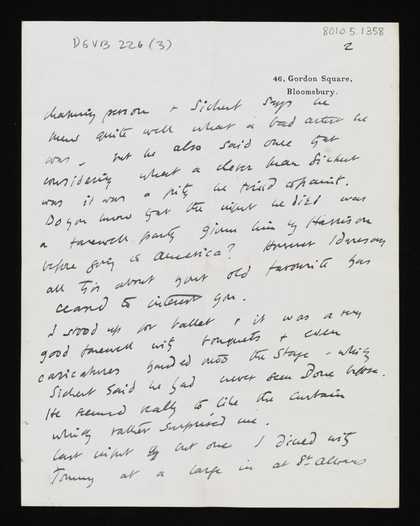 DGVB 226 (3)
8010.5.1358
2
46, Gordon Square,
Bloomsbury.
charming person + Sickert says he
knew quite well what a bad actor he
was, but he also said once that
considering what a clever man Sickert
was it was a pity he tried to paint.
Do you know that the night he died was
a farewell party given him by Harrison
before going to America? However I daresay
all this about your old favourite has
ceased to interest you.
I stood up for ballet + it was a very
good farewell with bouquets + even
caricatures handed onto the stage - which
Sickert said he had never seen done before.
He seemed really to like the curtain
which rather surprised me.
Last night but one I dined with
Tommy at a large inn at St Albans